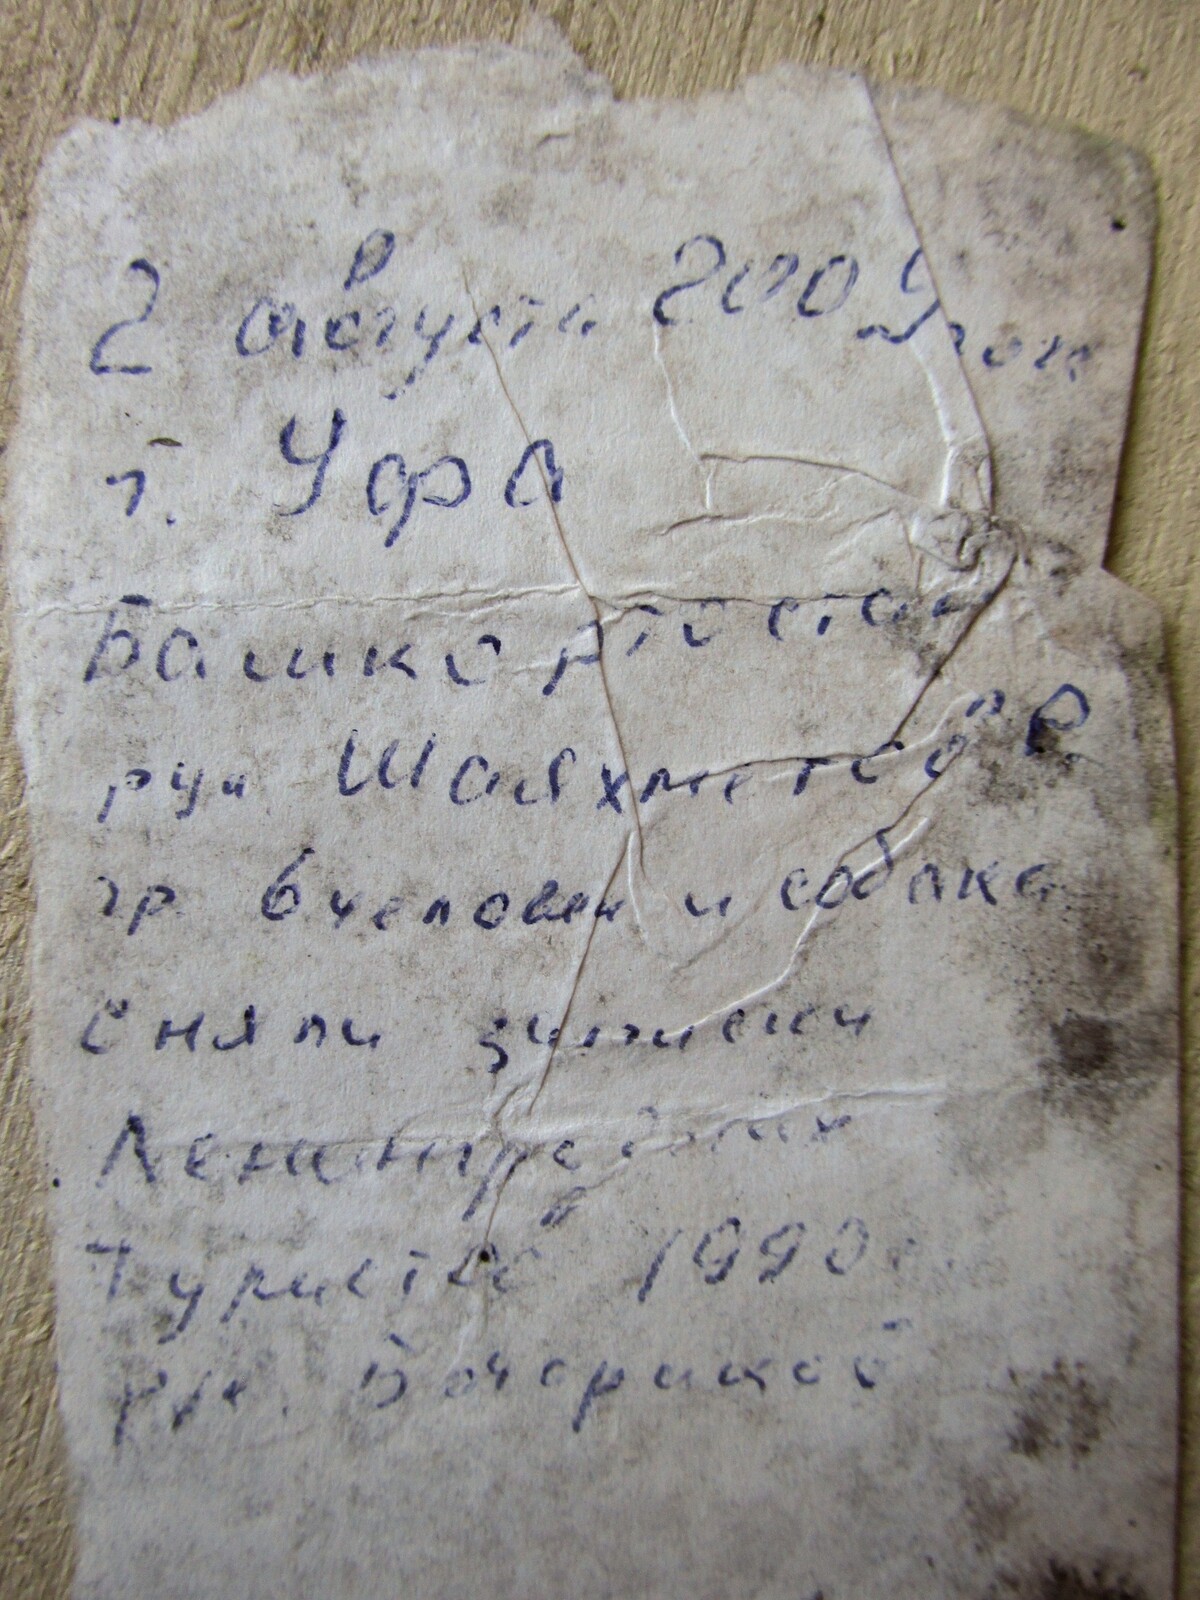 2 августа 2009 года
г. Уфа
Башкортостан
рук Шаяхметов Р
гр 6 человек и собака
Сняли записки
Ленинградских
Туристов 1990 г.
рук.